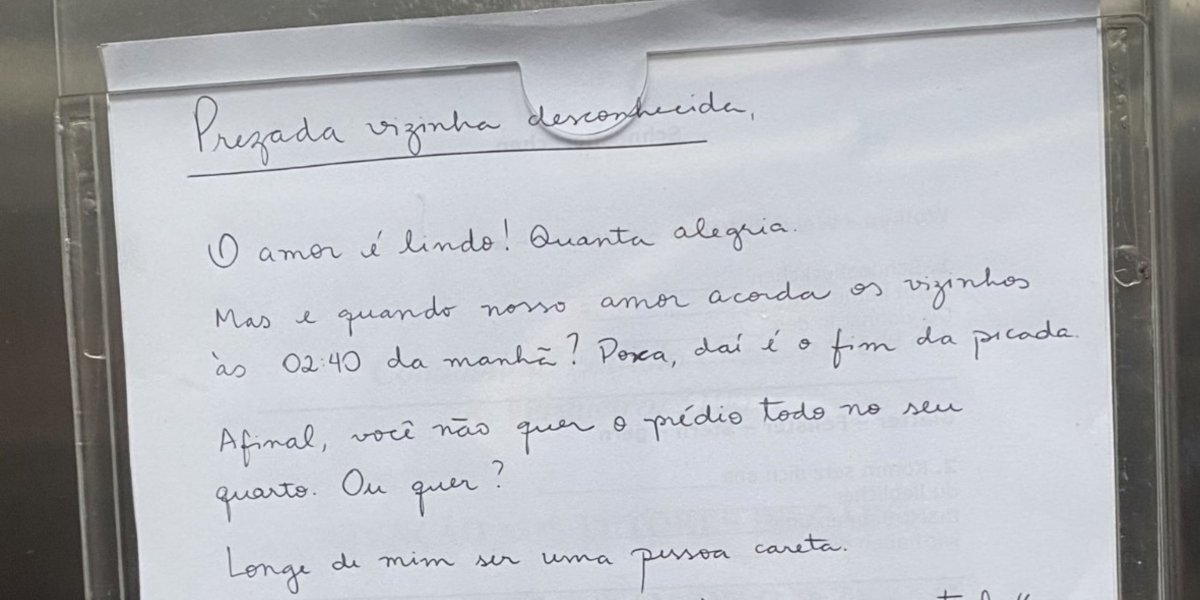 Prezada vizinha desconhecida,
O amor é lindo! Quanta alegria.
Mas e quando nosso amor acorda os vizinhos
às 02:40 da manhã? Poxa, daí é o fim da picada.
Afinal, você não quer o prédio todo no seu
quarto. Ou quer?
Longe de mim ser uma pessoa careta.